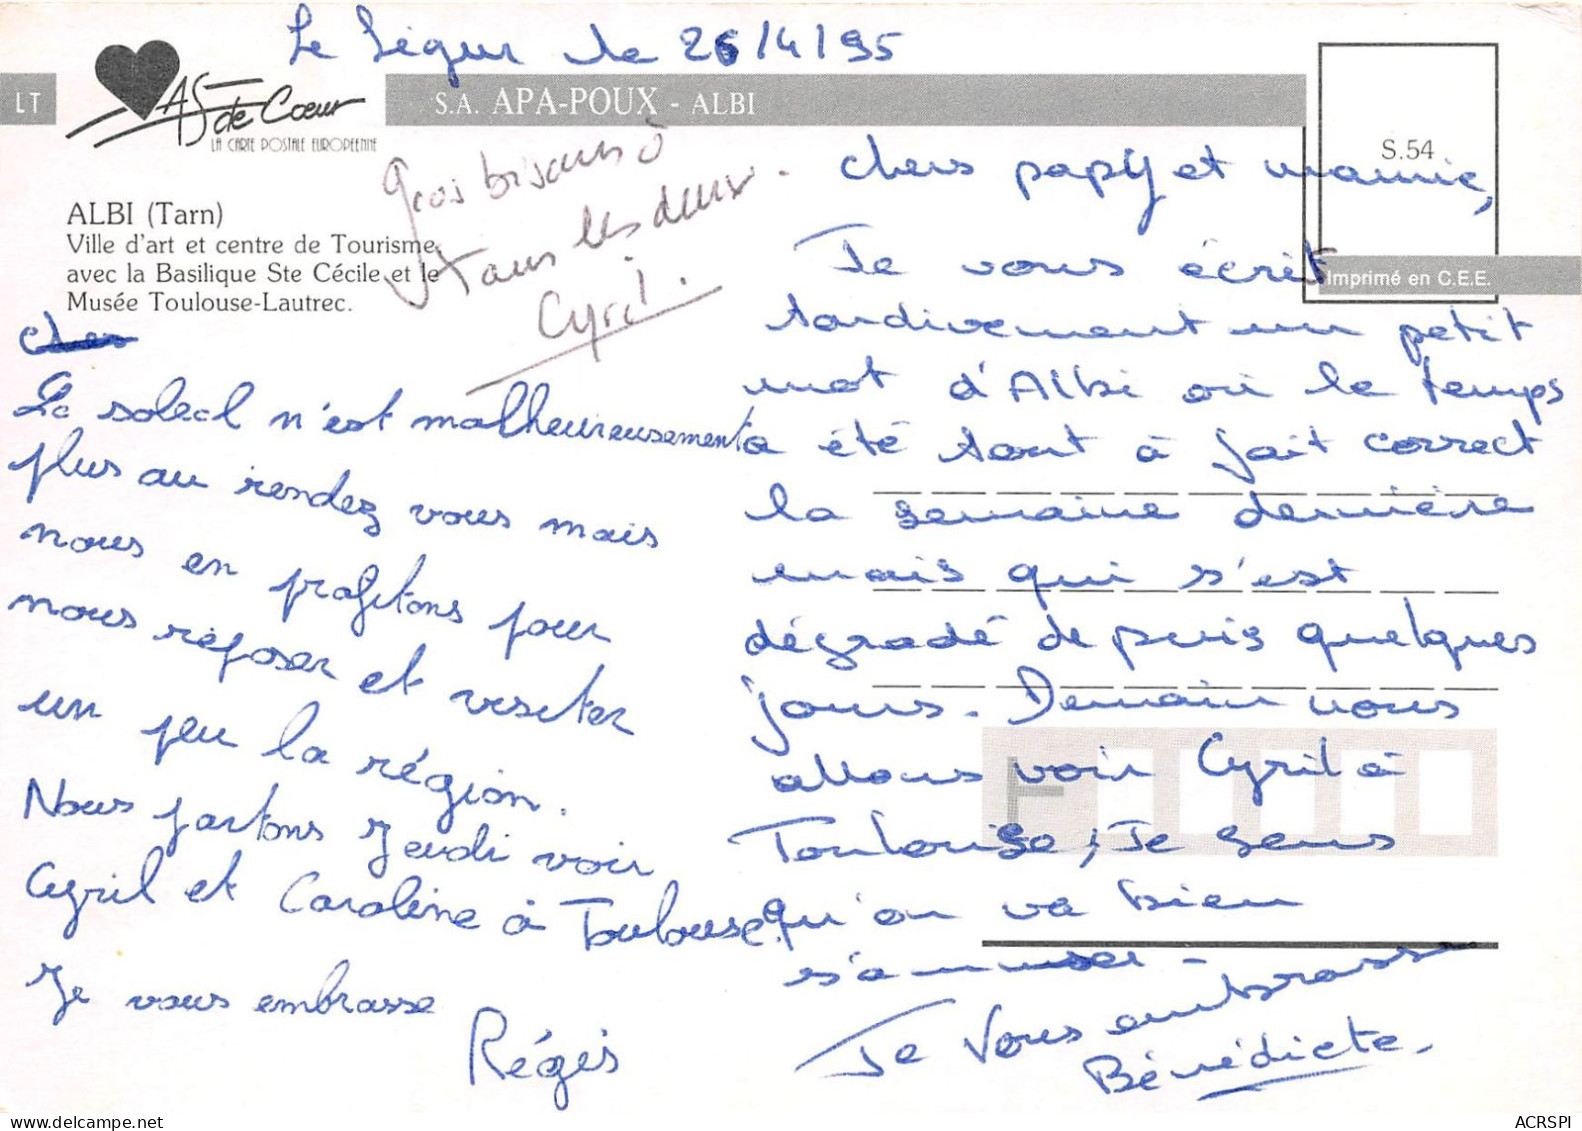 Le Ségur le 26/4/95
LT
AS de Cœur
LA CARTE POSTALE EUROPEENNE
S.A. APA-POUX - ALBI
S.54
Imprimé en C.E.E.
ALBI (Tarn)
Ville d'art et centre de Tourisme
avec la Basilique Ste Cécile et le
Musée Toulouse-Lautrec.
Gros bisous à
tous les deux.
Cyril.
Chers papy et mamie,
Je vous écrit
tardivement un petit
mot d'Albi où le temps
a été tout à fait correct
la semaine dernière
mais qui s'est
dégradé depuis quelques
jours. Demain nous
allons voir Cyril à
Toulouse, Je sens
qu'on va bien
s'amuser -
Je vous embrasse
Bénédicte.
Le soleil n'est malheureusement
plus au rendez vous mais
nous en profitons pour
nous reposer et visiter
un peu la région.
Nous partons Jeudi voir
Cyril et Caroline à Toulouse.
Je vous embrasse
Régis
F
ACRSPI